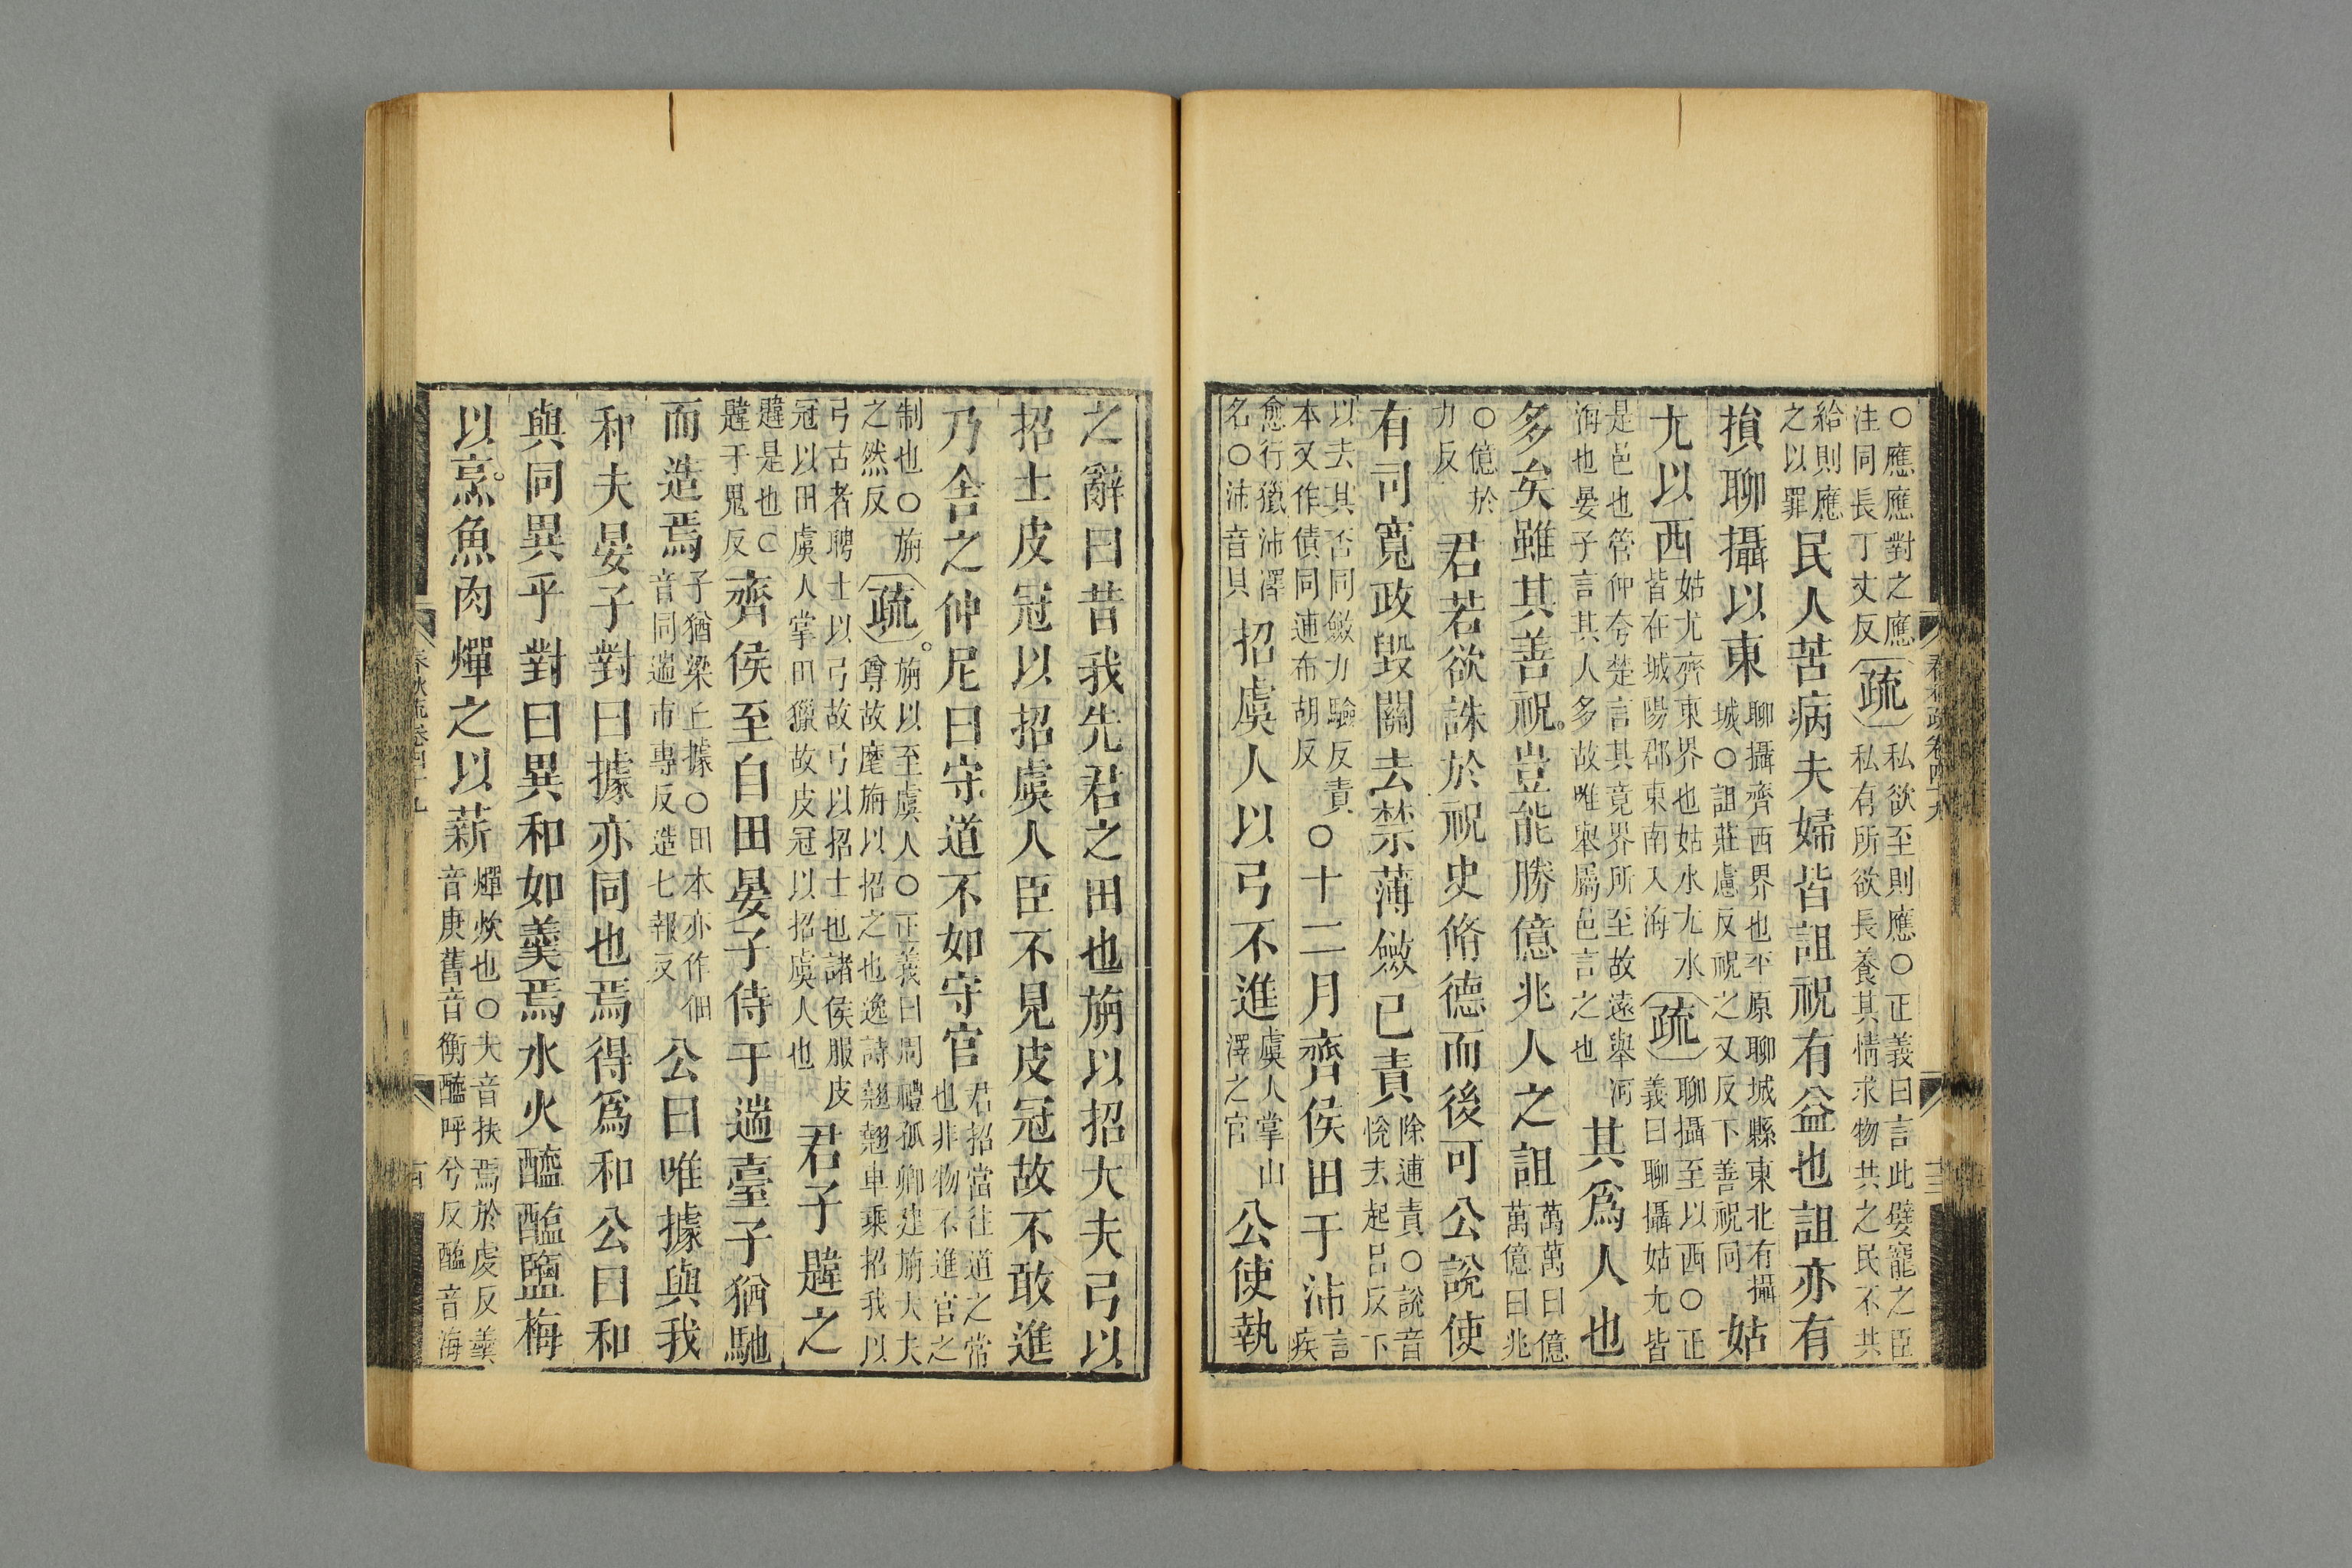 ○應應對之應
注同長丁丈反
疏
私欲至則應○正義曰言此嬖寵之臣
私有所欲長養其情求物共之民不共
給則應
之以罪
民人苦病夫婦皆詛祝有益也詛亦有
損聊攝以東
聊攝齊西界也平原聊城縣東北有攝
城○詛莊慮反祝之又反下善祝同
姑
尤以西
姑尤齊東界也姑水尤水
皆在城陽郡東南入海
疏
聊攝至以西○正
義曰聊攝姑尤皆
是邑也管仲夸楚言其竟界所至故遠舉河
海也晏子言其人多故唯舉屬邑言之也
其爲人也
多矣雖其善祝豈能勝億兆人之詛
萬萬曰億
萬億曰兆
○億於
力反
君若欲誅於祝史脩德而後可公說使
有司寬政毀關去禁薄斂已責
除逋責○說音
悅去起呂反下
以去其否同斂力驗反責
本又作債同逋布胡反
○十二月齊侯田于沛
言
疾
愈行獵沛澤
名○沛音貝
招虞人以弓不進
虞人掌山
澤之官
公使執
之辭曰昔我先君之田也旃以招大夫弓以
招士皮冠以招虞人臣不見皮冠故不敢進
乃舍之仲尼曰守道不如守官
君招當往道之常
也非物不進官之
制也○旃
之然反
疏
旃以至虞人○正義曰周禮孤卿建旃大夫
尊故麾旃以招之也逸詩翹翹車乘招我以
弓古者聘士以弓故弓以招士也諸侯服皮
冠以田虞人掌田獵故皮冠以招虞人也
君子韙之
韙是也○
韙于鬼反
齊侯至自田晏子侍于遄臺子猶馳
而造焉
子猶梁丘據○田本亦作佃
音同遄市專反造七報反
公曰唯據與我
和夫晏子對曰據亦同也焉得爲和公曰和
與同異乎對曰異和如羹焉水火醯醢鹽梅
以烹魚肉燀之以薪
燀炊也○夫音扶焉於虔反羹
音庚舊音衡醯呼兮反醢音海